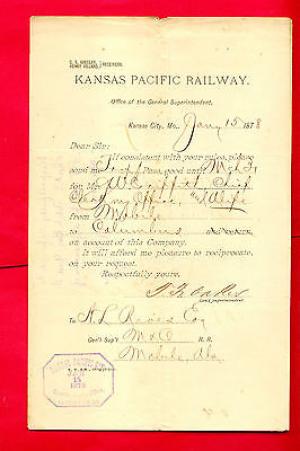 C. S. GREELEY, } RECEIVERS.
HENRY VILLARD,
KANSAS PACIFIC RAILWAY.
Office of the General Superintendent.
Kansas City, Mo., Jany 15 1878
Dear Sir:
If consistent with your rules, please
send me Trip Pass, good until
for Mr. Chief
Office, & Wife
from Mobile
to Columbus
on account of this Company.
It will afford me pleasure to reciprocate,
on your request.
Respectfully yours,
T. F. Oakes
Gen'l Superintendent.
To A. L. Rives Esq
Gen'l Sup't M & O R. R.
Mobile, Ala.
JAN
15
1878